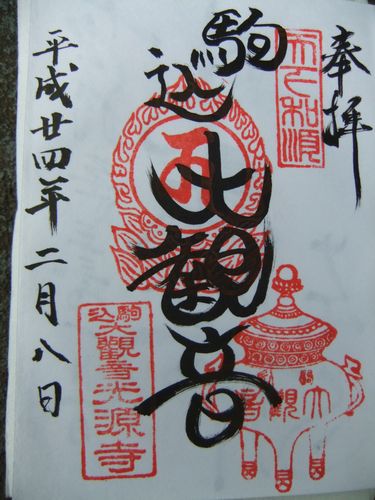 奉拝
天下和順
駒込大観音
大觀音
駒込
大觀音光源寺
平成廿四年二月八日